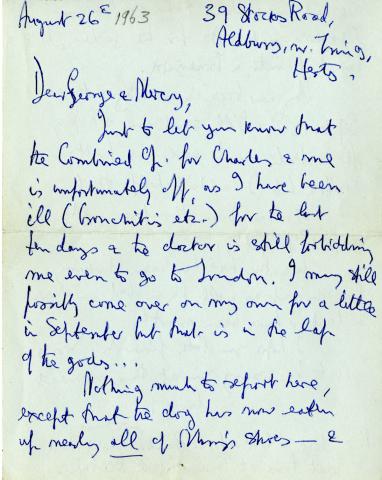 August 26th 1963
39 Stocks Road,
Aldbury, nr. Tring,
Herts.
Dear George & Mercy,
Just to let you know that
the Combined Op. for Charles & me
is unfortunately off, as I have been
ill (bronchitis etc.) for the last
ten days & the doctor is still forbidding
me even to go to London. I may still
possibly come over on my own for a little
in September but that is in the lap
of the gods...
Nothing much to report here,
except that the dog has now eaten
up nearly all of shoes — &